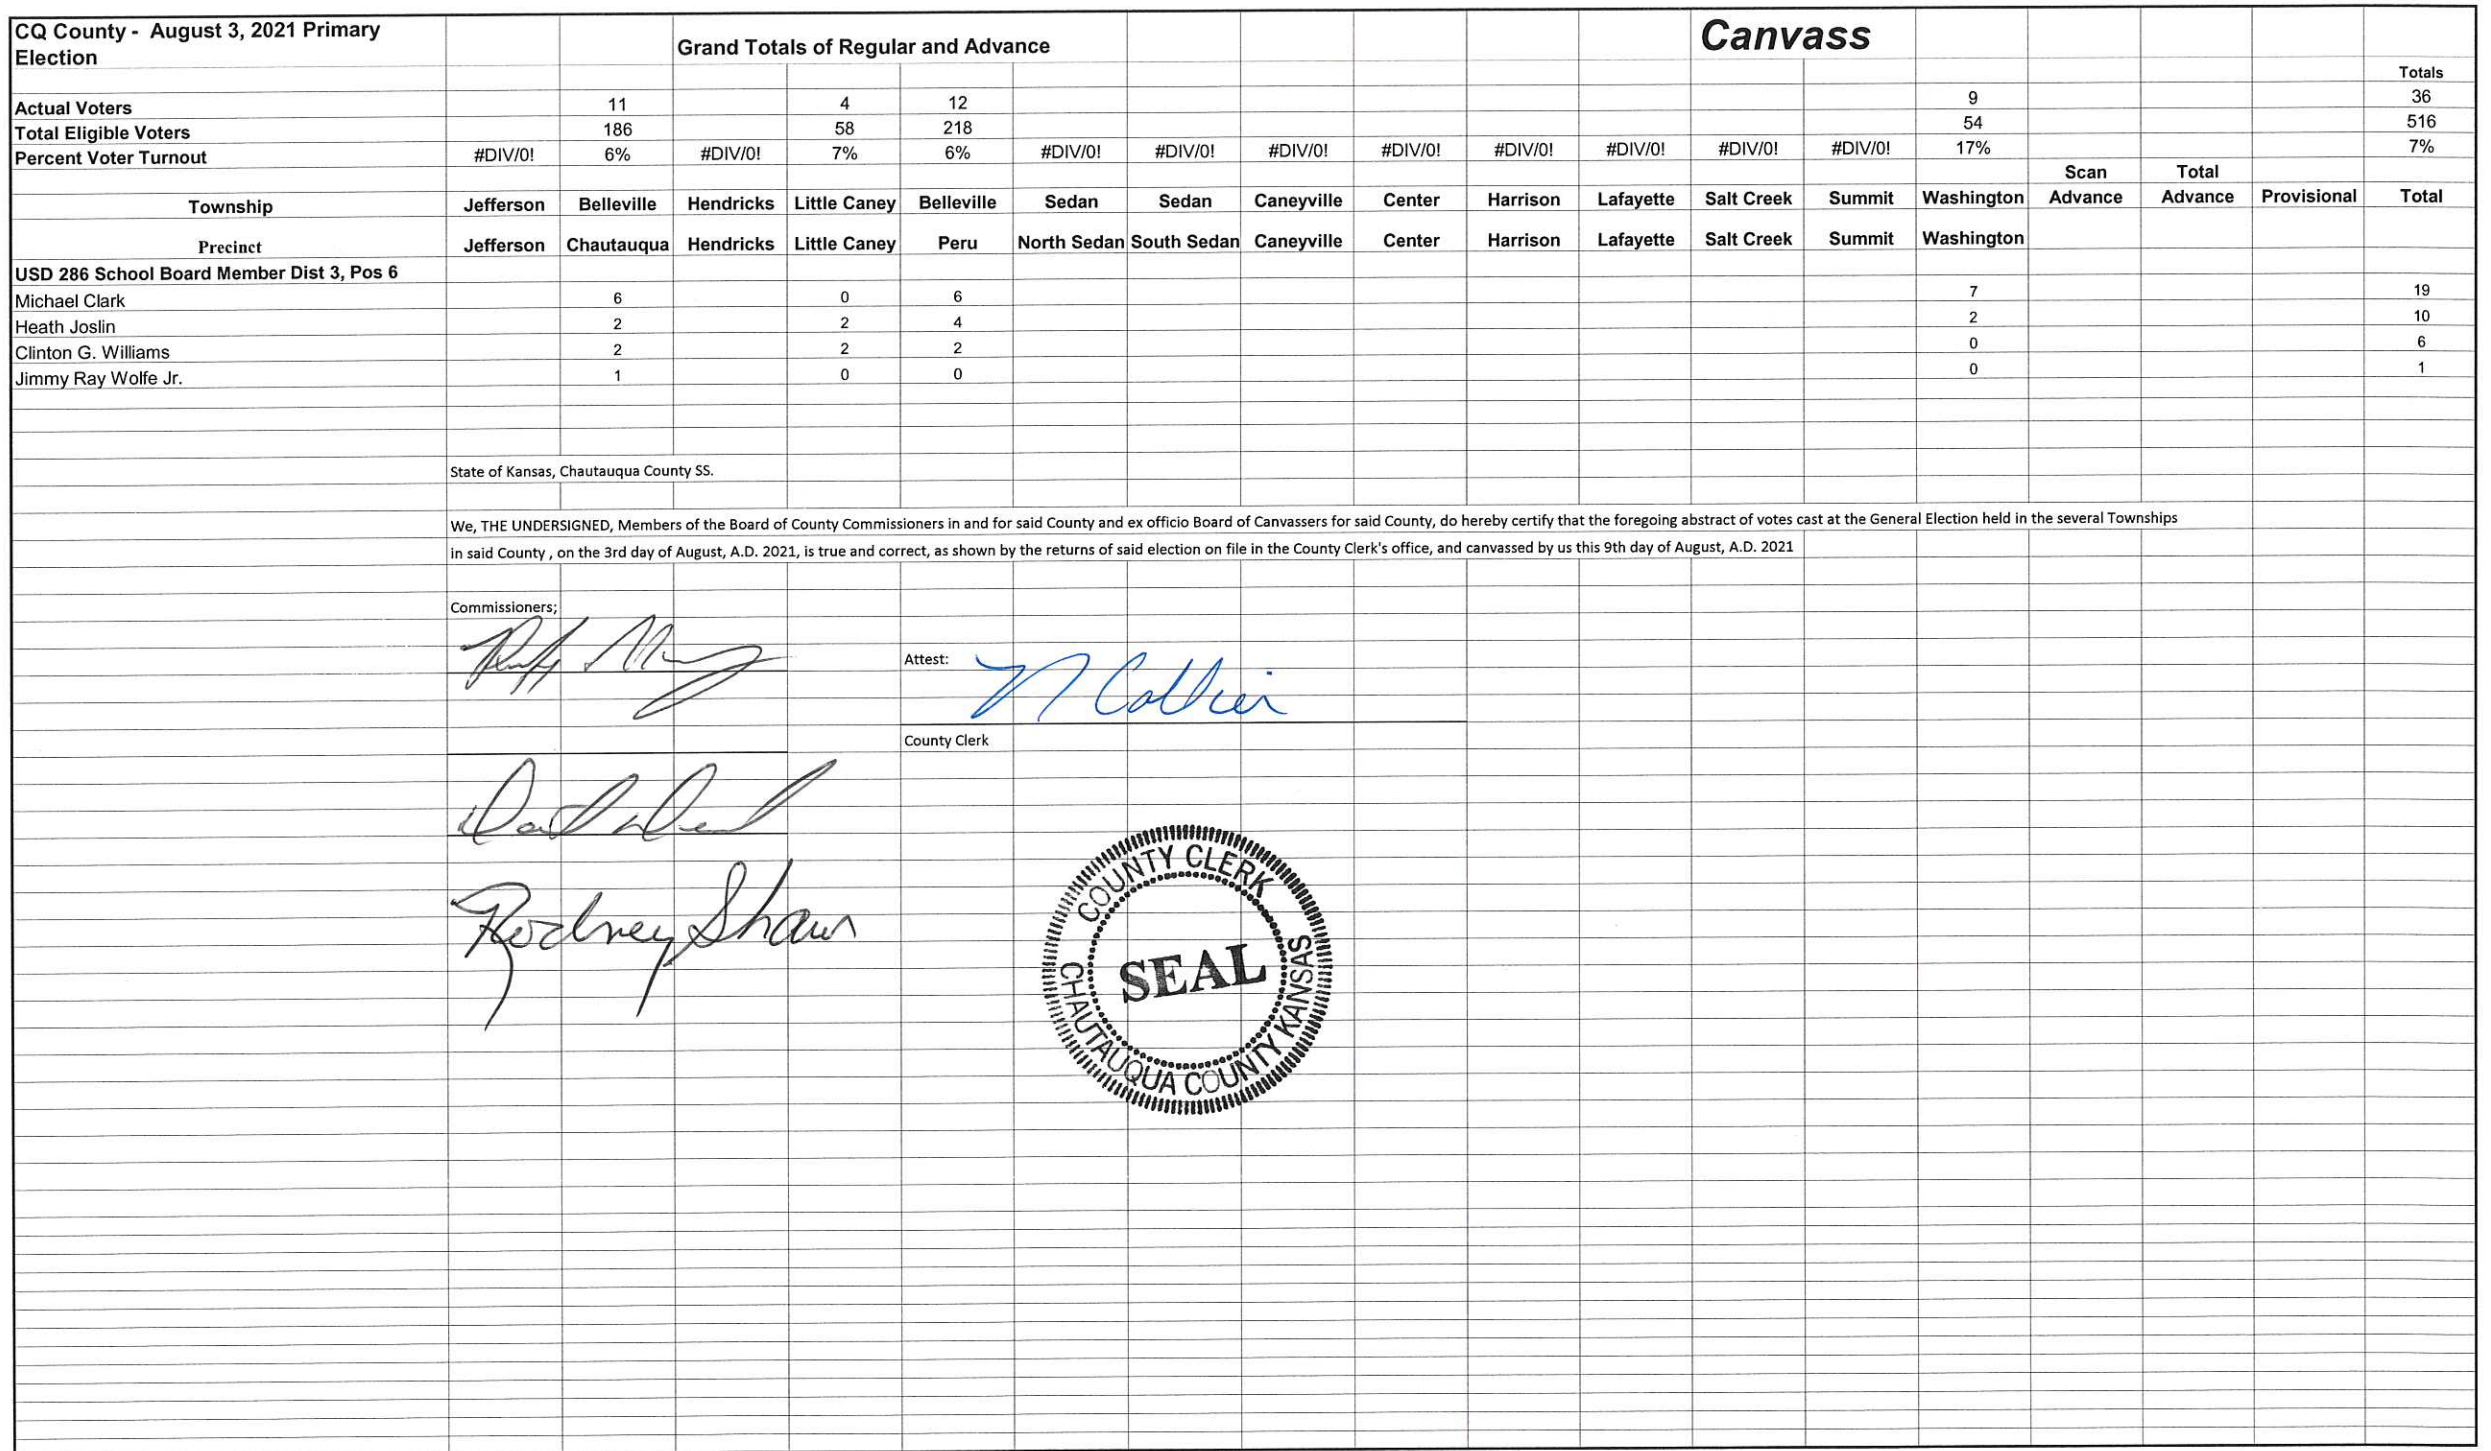 CQ County - August 3, 2021 Primary Election
Grand Totals of Regular and Advance
Canvass
Totals
Actual Voters 11 4 12 9 36
Total Eligible Voters 186 58 218 54 516
Percent Voter Turnout #DIV/0! 6% #DIV/0! 7% 6% #DIV/0! #DIV/0! #DIV/0! #DIV/0! #DIV/0! #DIV/0! #DIV/0! #DIV/0! 17% 7%
Scan Total
Township Jefferson Belleville Hendricks Little Caney Belleville Sedan Sedan Caneyville Center Harrison Lafayette Salt Creek Summit Washington Advance Advance Provisional Total
Precinct Jefferson Chautauqua Hendricks Little Caney Peru North Sedan South Sedan Caneyville Center Harrison Lafayette Salt Creek Summit Washington
USD 286 School Board Member Dist 3, Pos 6
Michael Clark 6 0 6 7 19
Heath Joslin 2 2 4 2 10
Clinton G. Williams 2 2 2 0 6
Jimmy Ray Wolfe Jr. 1 0 0 0 1
State of Kansas, Chautauqua County SS.
We, THE UNDERSIGNED, Members of the Board of County Commissioners in and for said County and ex officio Board of Canvassers for said County, do hereby certify that the foregoing abstract of votes cast at the General Election held in the several Townships
in said County , on the 3rd day of August, A.D. 2021, is true and correct, as shown by the returns of said election on file in the County Clerk's office, and canvassed by us this 9th day of August, A.D. 2021
Commissioners;
Attest: N Collier
County Clerk
Rodney Shaw
COUNTY CLERK
SEAL
CHAUTAUQUA COUNTY KANSAS